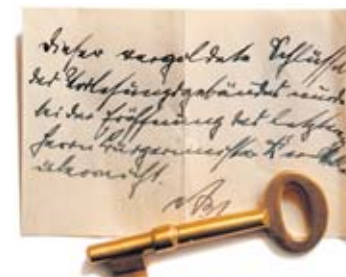 Dieser vergoldete Schlüssel
des Vorlesungsgebäudes wurde
bei der Eröffnung des letzten
Herrn Bürgermeister
überreicht.